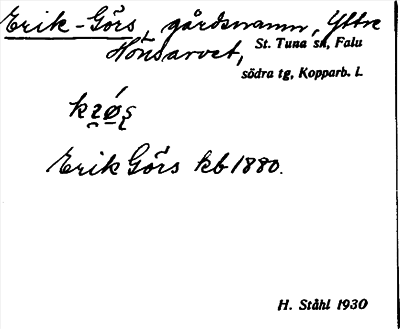 Erik-Görs, gårdsnamn, Yttre
Hönsarvet, St. Tuna sn, Falu
södra tg, Kopparb. l.
Erik Görs kb 1880.
H. Ståhl 1930